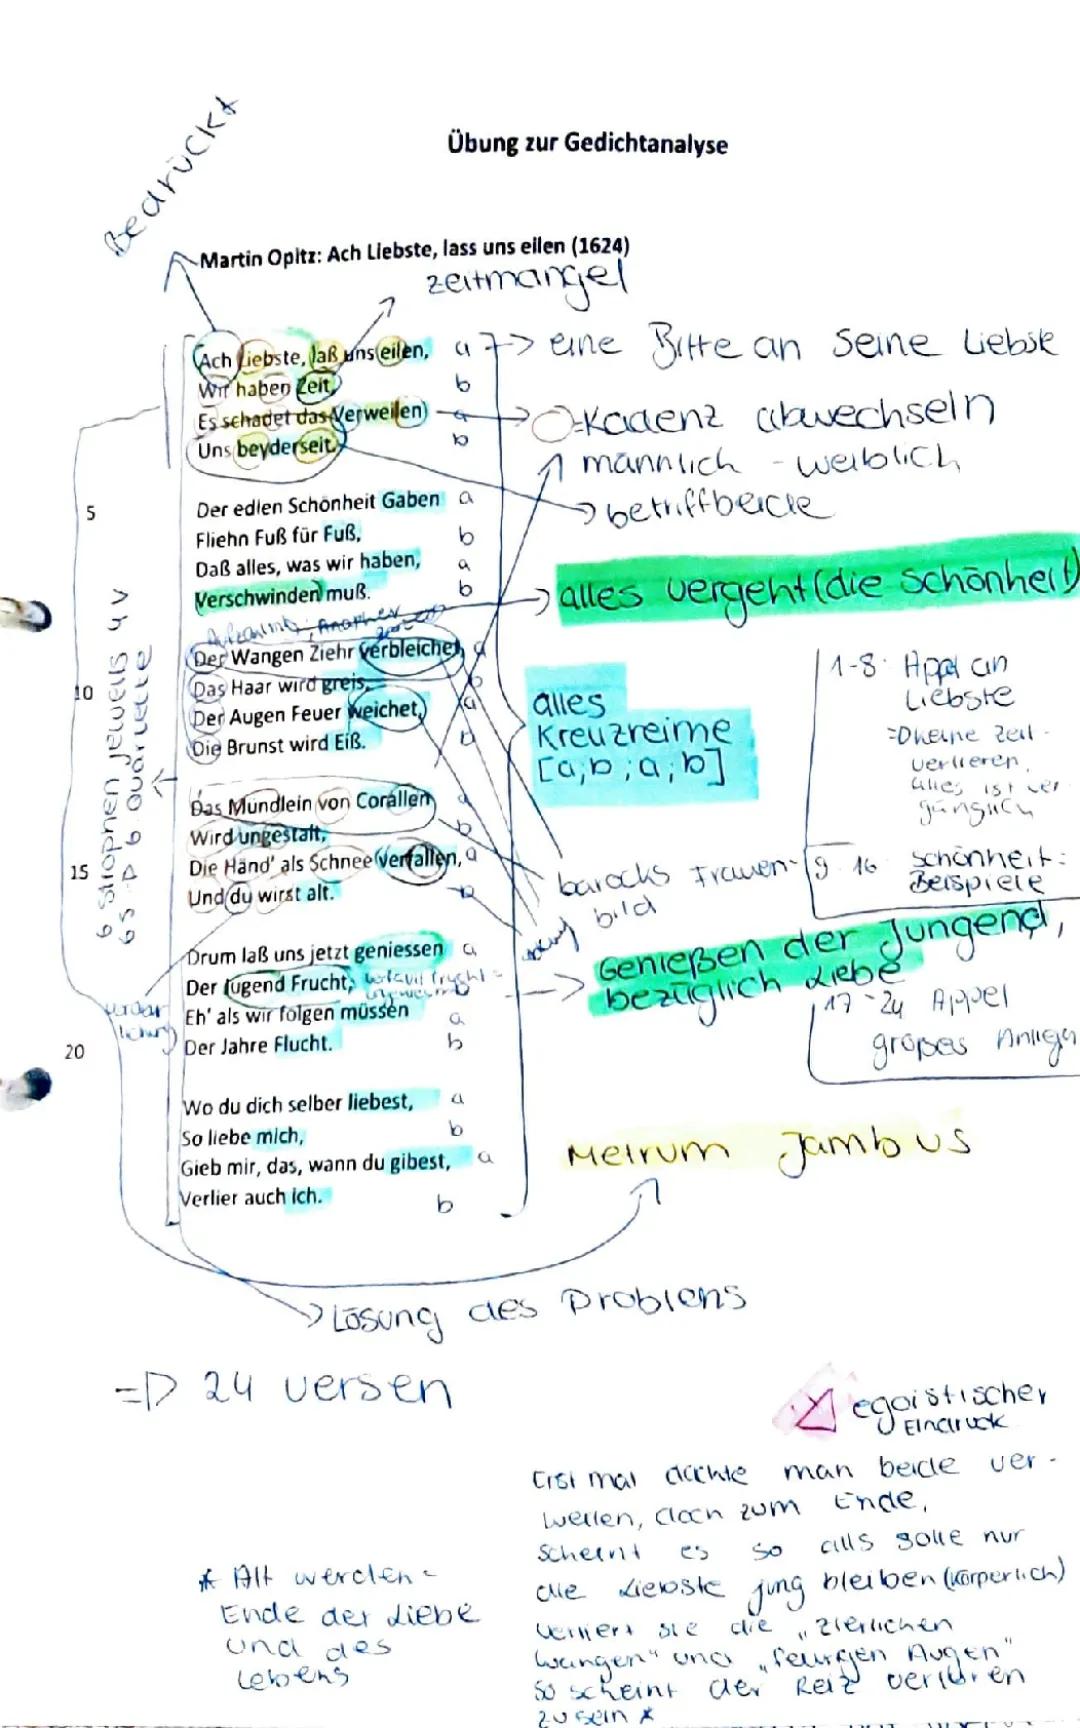 Bedrückt
Übung zur Gedichtanalyse
Martin Opitz: Ach Liebste, lass uns eilen (1624)
zeitmangel
Ach Liebste, laß uns eilen, a -> eine Bitte an seine Liebste
Wir haben Zeit, b
Es schadet das Verweilen a -> O=Kadenz abwechseln
männlich - weiblich
Uns beyderseit. b
-> betrifft beide
5
Der edlen Schönheit Gaben a
Fliehn Fuß für Fuß, b
Daß alles, was wir haben, a
Verschwinden muß. b
-> alles vergeht (die Schönheit)
Der Wangen Ziehr verbleichet, a
10
Das Haar wird greis, b
Der Augen Feuer weichet, a
Die Brunst wird Eiß. b
alles
Kreuzreime
[a;b;a;b]
1-8: Appel an
Liebste
=D keine Zeit
verlieren,
alles ist ver-
gänglich
6 Strophen jeweils 4 V
6 S =D 6 Quartette
Das Mündlein von Corallen a
Wird ungestalt, b
15
Die Händ' als Schnee verfallen, a
Und du wirst alt. b
barocks Frauen-
bild
9-16 Schönheit:
Beispiele
Drum laß uns jetzt geniessen a
Der Jugend Frucht, b
Eh' als wir folgen müssen a
20
Der Jahre Flucht. b
-> Genießen der Jungend,
bezüglich Liebe
17-24 Appel
großes Anliegn
Wo du dich selber liebest, a
So liebe mich, b
Gieb mir, das, wann du gibest, a
Verlier auch ich. b
Metrum Jambus
-> Lösung des Problems
=D 24 versen
egoistischer
Eindruck
Erst mal dachte man beide ver-
weilen, doch zum Ende,
scheint es so alls solle nur
die Liebste jung bleiben (körperlich)
verliert sie die „zierlichen
Wangen" und „feurigen Augen"
so scheint der Reiz verloren
zu sein *
* Alt werden =
Ende der Liebe
und des
Lebens